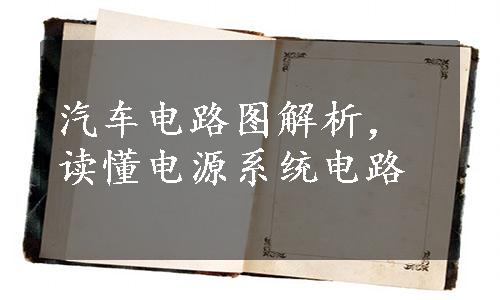 汽车电路图解析，
读懂电源系统电路